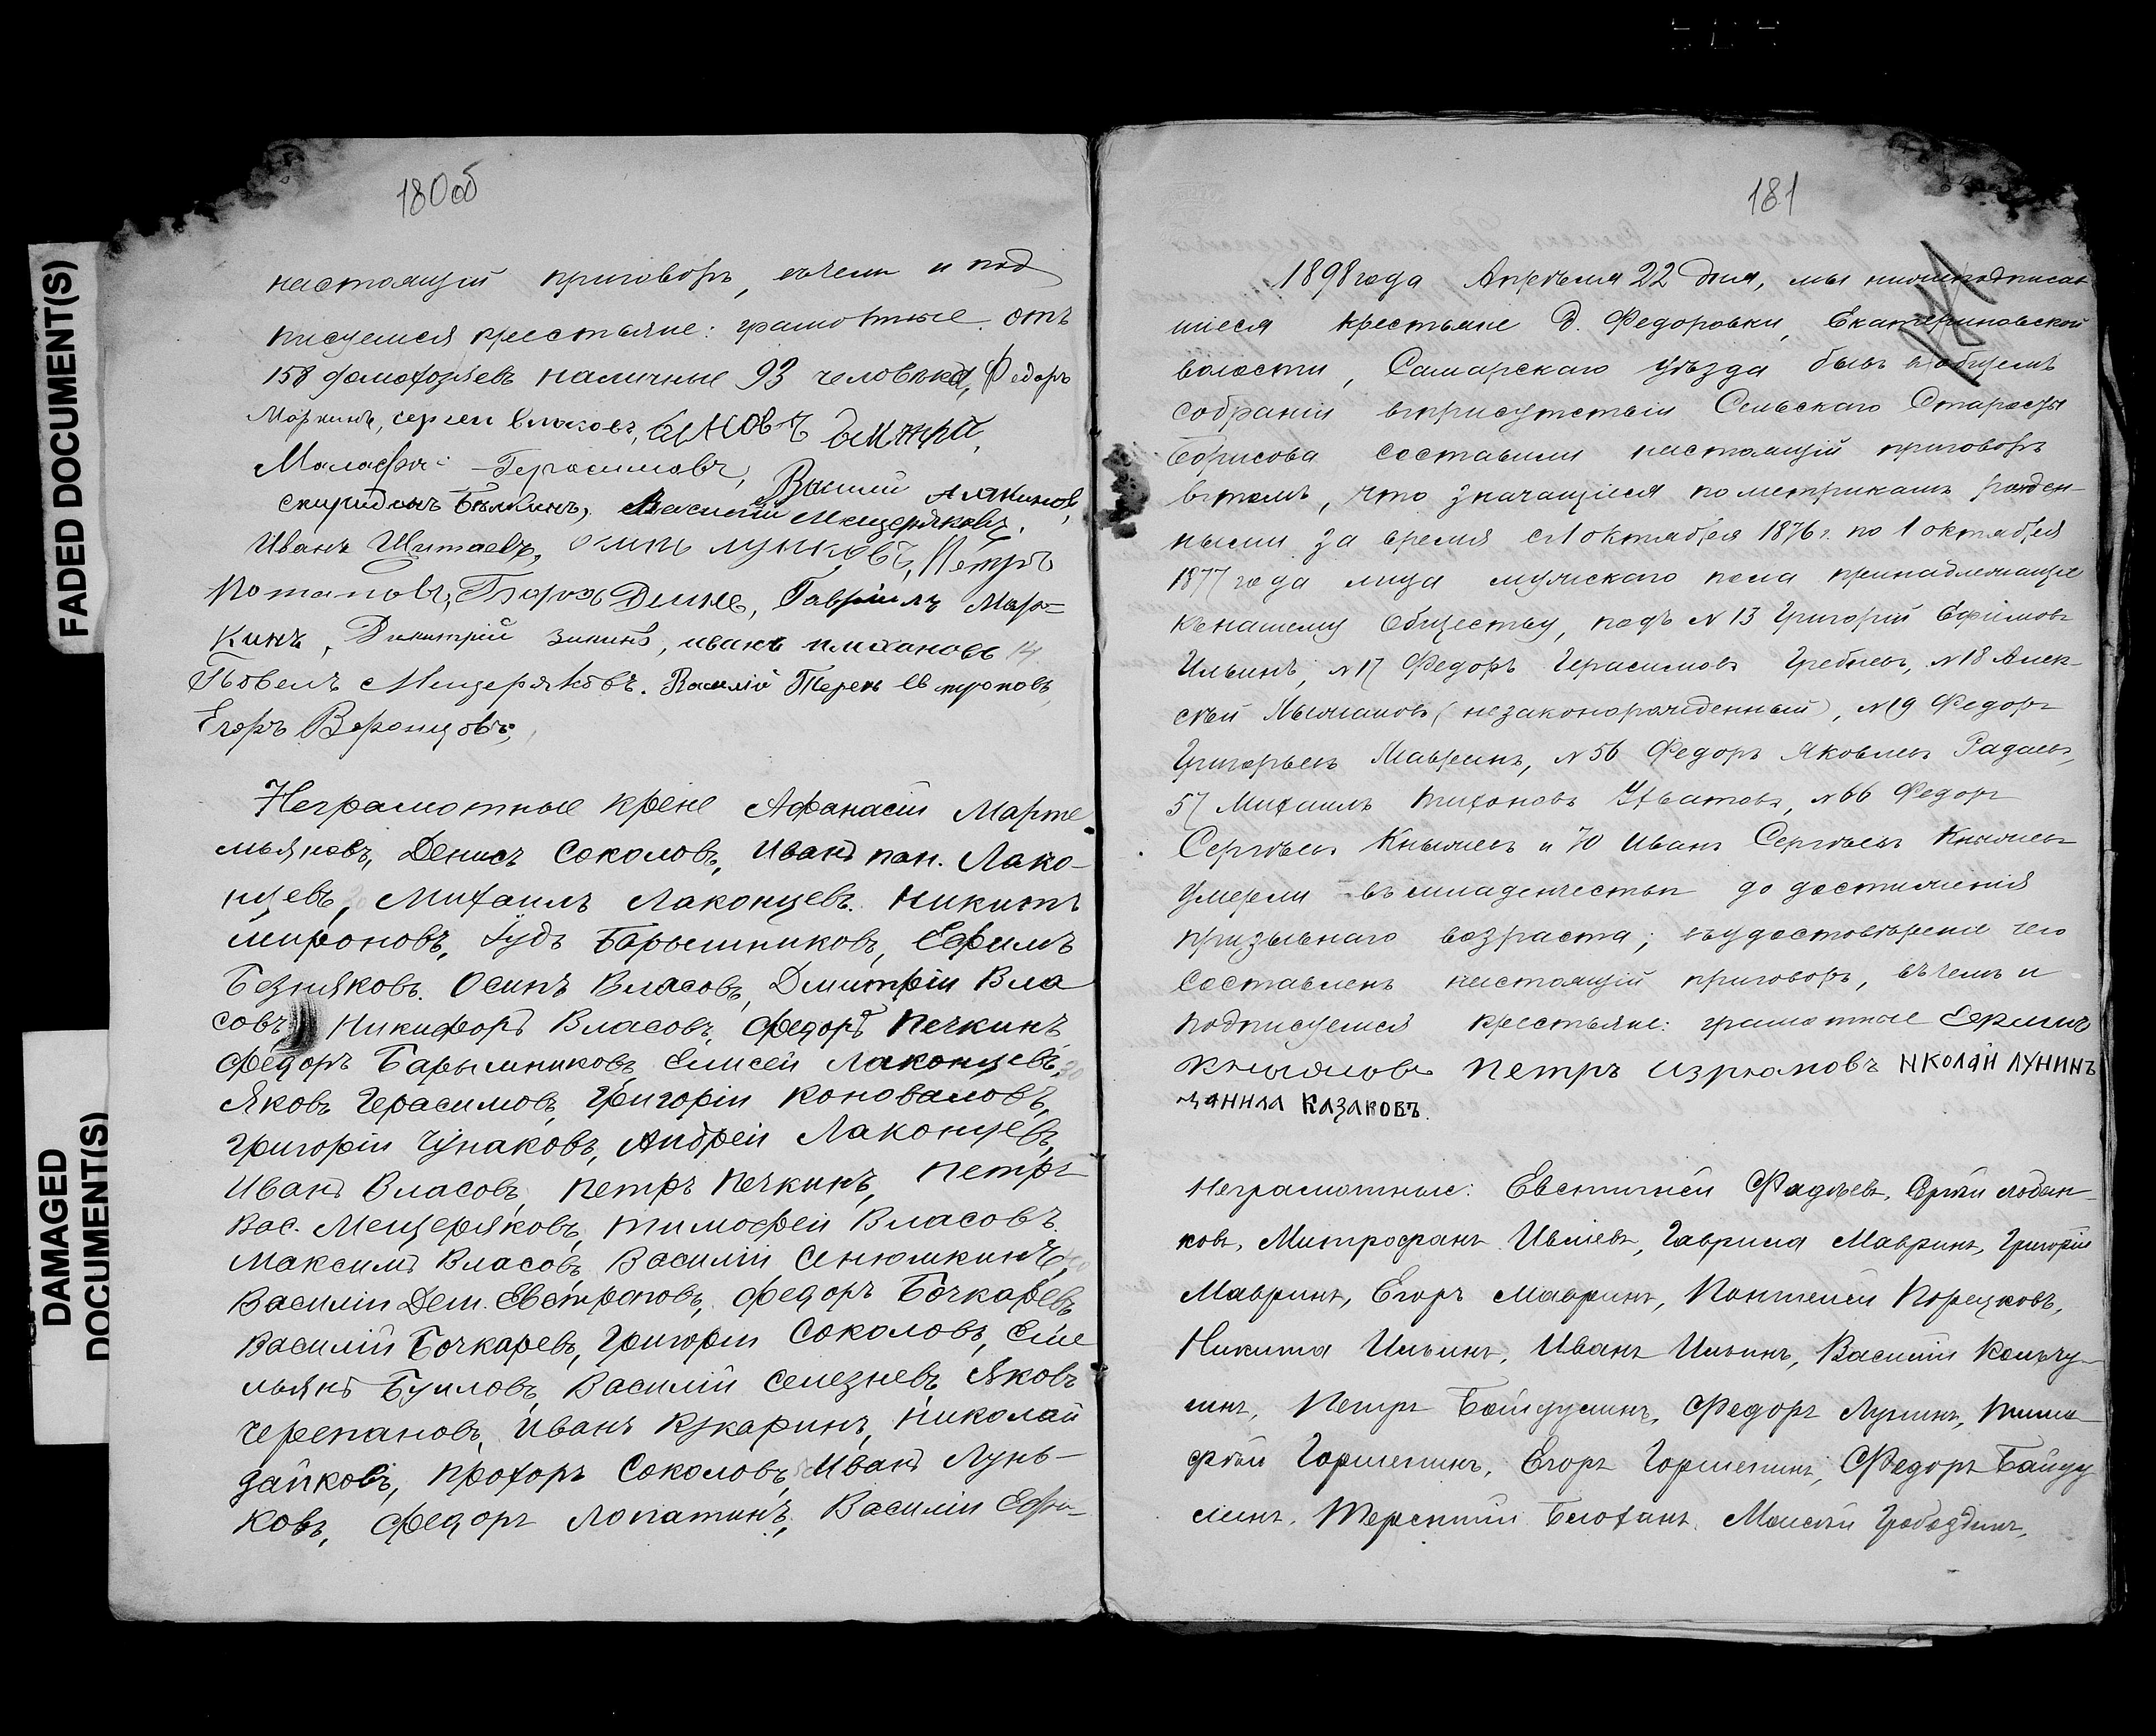 FADED DOCUMENT(S)
DAMAGED
DOCUMENT(S)
180об
настоящій приговоръ, въ чемъ и под
писуемся крестьяне: грамотные отъ
158 домохозяевъ наличные 93 человѣка, Федоръ
Моркинъ, сергеи власовъ,
Малафѣ Герасимовъ, Василий Алякинов,
скиридонъ Бѣлкинъ, Василій Мещеряковъ,
Иванъ Шитаевъ, Осипъ лунковъ, Петръ
Потаповъ, Гаврiилъ Мар-
кинъ, Димитрий зининъ, иванъ плахановъ 14
Повелъ Мещеряковъ. Василий Терен Евтроповъ,
Егоръ Воронцовъ,
Неграмотные крене Афанасій Марте
мьяновъ, Денисъ Соколовъ, Иванъ пан. Лако-
нцевъ, Михаилъ Лаконцевъ. Никитъ
мироновъ, Іудъ Барышниковъ, Ефимъ
Безняковъ. Осипъ Власовъ, Дмитріи Вла
совъ, Никифоръ Власовъ, Федоръ Печкинъ,
Федоръ Барышниковъ, Елисей Лаконцевъ, 30
Яковъ Герасимовъ, Григоріи Коноваловъ,
Григоріи Чунаковъ, Андреи Лаконцевъ,
Иванъ Власовъ, Петръ Печкинъ, Петръ
Вас. Мещеряковъ, Тимофеи Власовъ.
Максимъ Власовъ, Василіи Сенюшкинъ, 40
Василіи Дем. Евстратовъ, Федоръ Бочкаревъ,
Василій Бочкаревъ, Григоріи Соколовъ, Еме
льянъ Буиловъ, Василій Селезневъ, Яковъ
Черепановъ, Иванъ Кукаринъ, Николай
Зайковъ, Прохоръ Соколовъ, Иванъ Лунь-
ковъ, Федоръ Лопатинъ, Василіи Ефи-
181
1898 года Апрѣля 22 дня, мы нижеподписав
шіеся крестьяне д. Федоровки, Екатериновской
волости, Самарскаго уѣзда бывъ на общемъ
собраніи въ присутствіи Сельскаго Старосты
Борисова составили настоящій приговоръ
въ томъ, что значащіеся по метрикамъ рожден-
ными за время съ 1 октября 1876 г. по 1 октября
1877 года лица мужскаго пола принадлежащіе
къ нашему Обществу, подъ №13 Григорій Ефимовъ
Ильинъ, №17 Федоръ Герасимовъ Гребневъ, №18 Алек-
сѣй (незаконорожденный), №19 Федоръ
Григорьевъ Мавринъ, №56 Федоръ Яковлевъ Радаевъ,
57 Михаилъ Тихоновъ Ухватовъ, №66 Федоръ
Сергѣевъ Княжевъ и 70 Иванъ Сергѣевъ Княжевъ
умерли въ младенчествѣ до достиженія
призывнаго возраста; въ удостовѣреніе чего
составленъ настоящій приговоръ, въ чемъ и
подписуемся крестьяне: грамотные
Петръ Изрюмовъ НКОЛАЙ ЛУНИНЪ
ДАНИЛА КАЗАКОВЪ.
Неграмотные: Евстигней Фадѣевъ, Сергѣи лобан-
ковъ, Митрофанъ Ивлиевъ, Гаврила Мавринъ, Григоріи
Мавринъ, Егоръ Мавринъ, Пантелеи Порецковъ,
Никита Ильинъ, Иванъ Ильинъ, Василіи Кольчу-
линъ, Петръ Байдулинъ, Федоръ Лунинъ, Тимо
фѣй Горшенинъ, Егоръ Горшенинъ, Федоръ Байду
линъ, Терентій Моисѣй